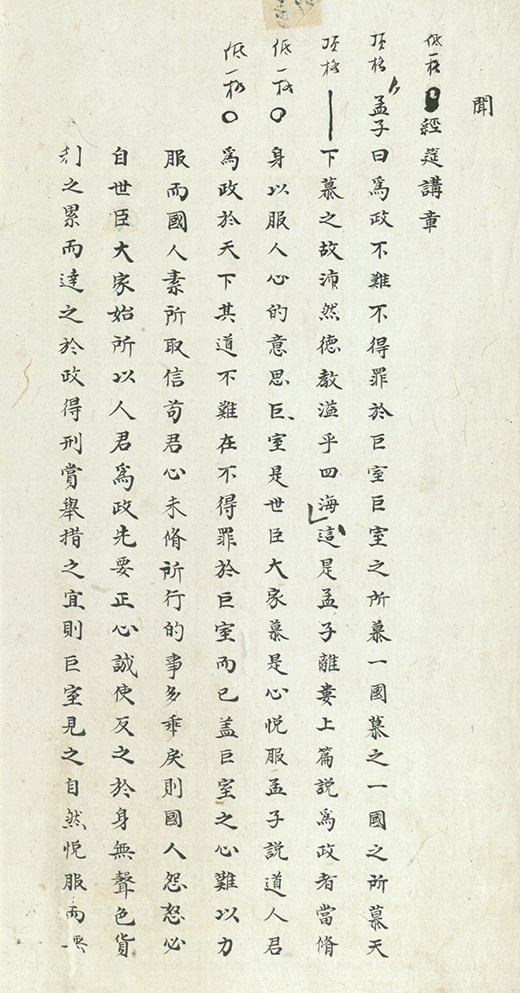 聞
低一格 經筵講章
頂格 孟子曰爲政不難不得罪於巨室巨室之所慕一國慕之一國之所慕天
頂格 下慕之故沛然德教溢乎四海這是孟子離婁上篇説爲政者當脩
低一格 〇 身以服人心的意思巨室是世臣大家慕是心悦服孟子說道人君
低一格 〇 爲政於天下其道不難在不得罪於巨室而已盖巨室之心難以力
服而國人素所取信苟君心未脩所行的事多乖戾則國人怨怒必
自世臣大家始所以人君爲政先要正心誠使反之於身無聲色貨
利之累而達之於政得刑賞舉措之宜則巨室見之自然悦服而